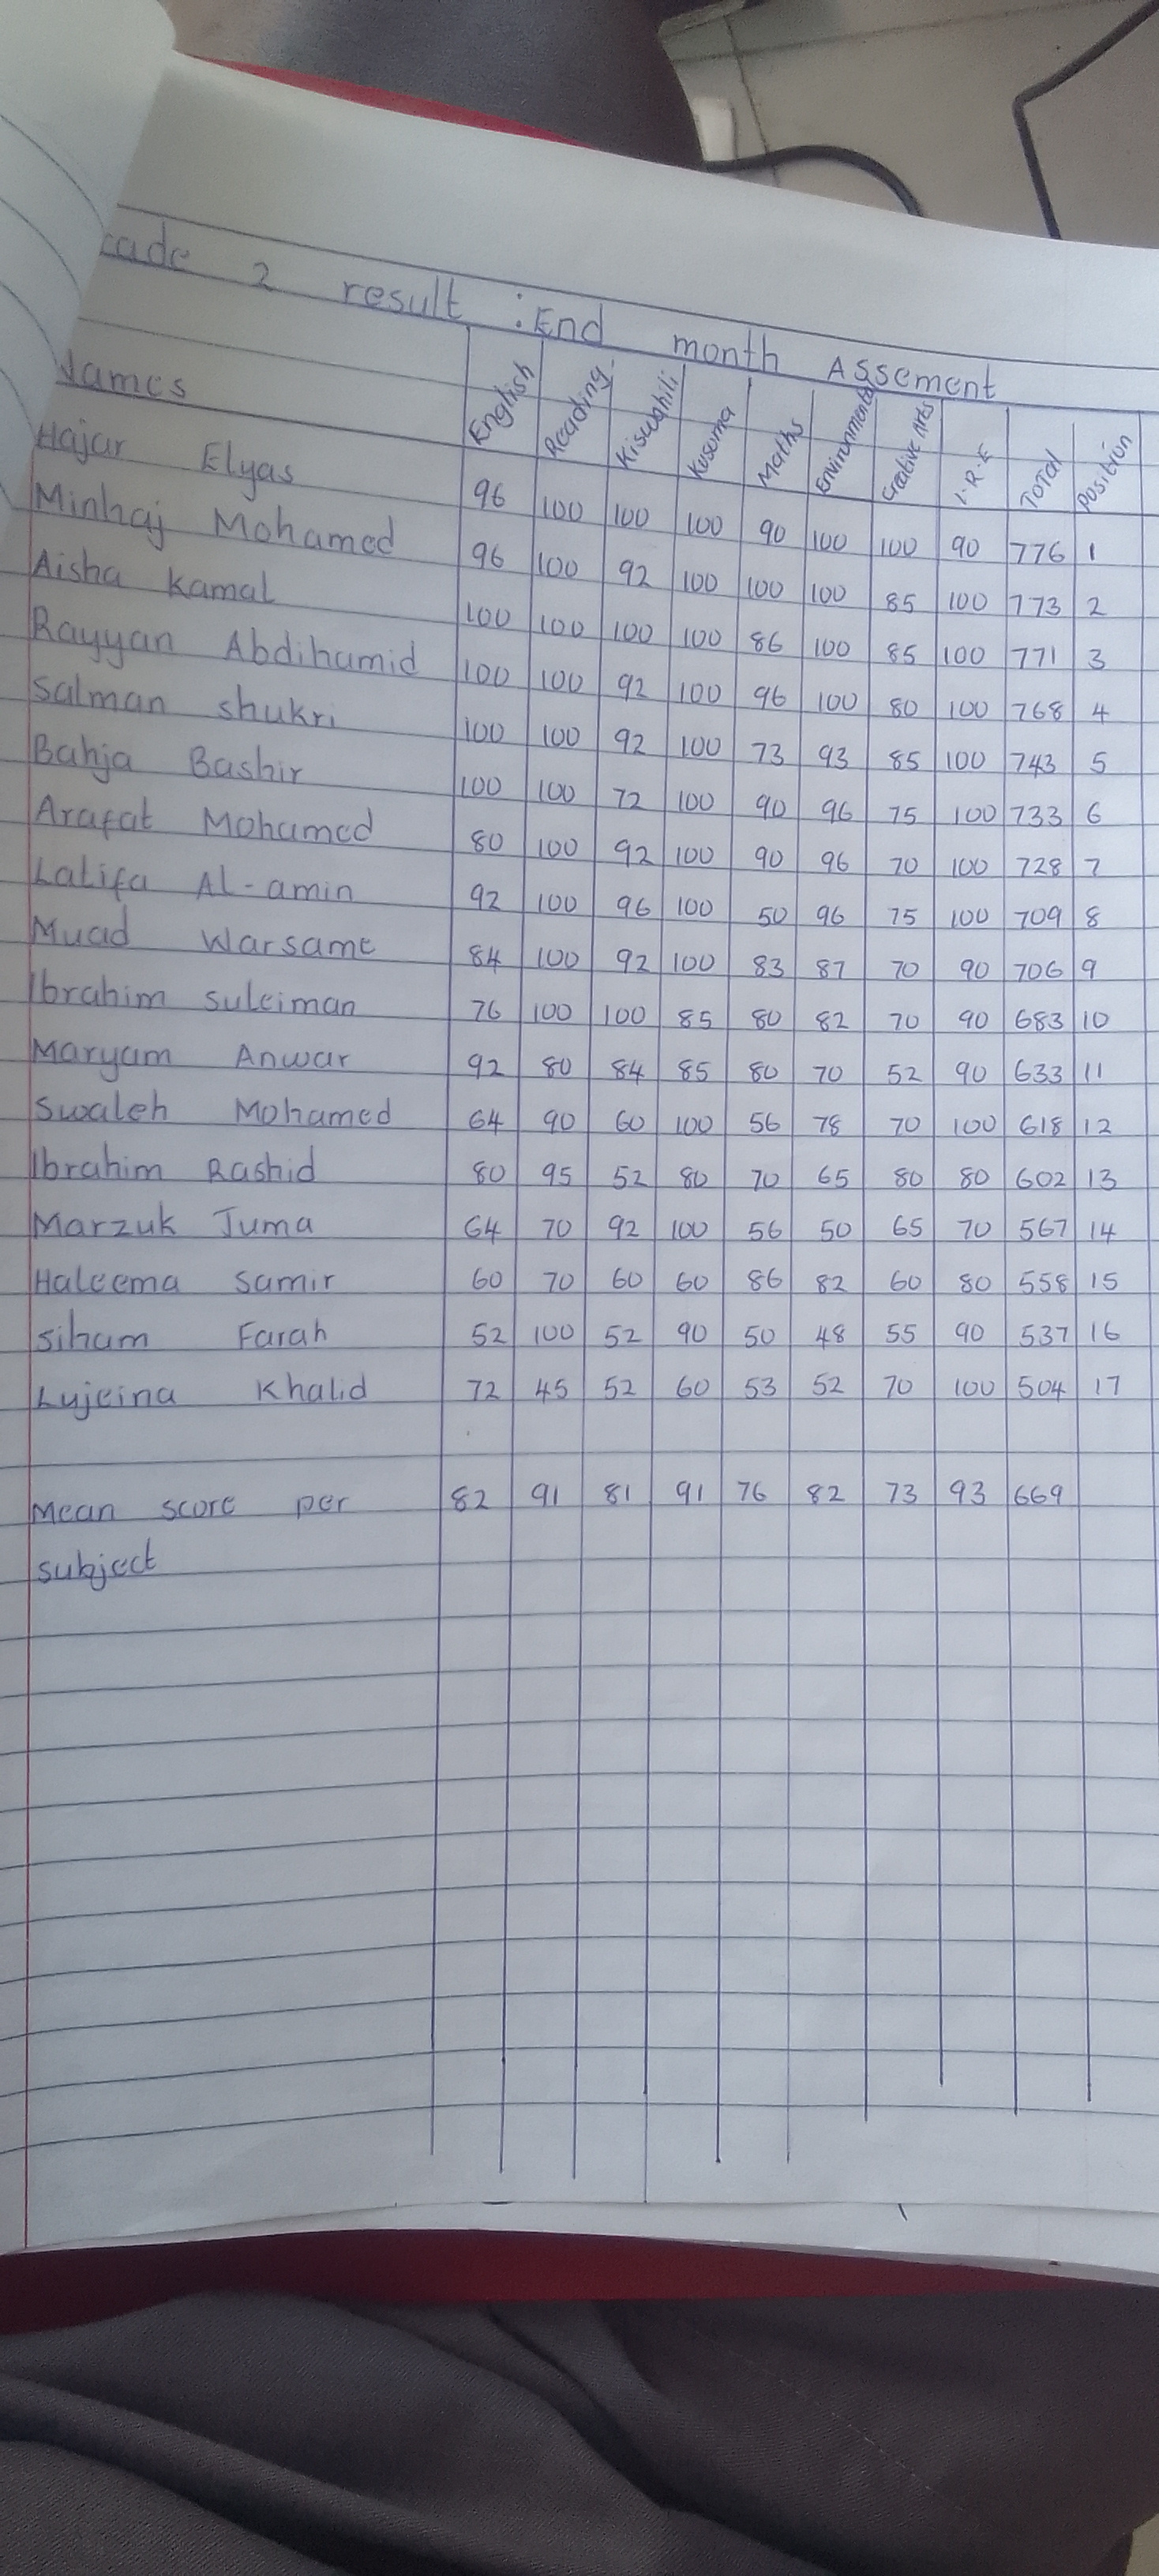 cade 2 result : End month Assement
Names English Reading Kiswahili Kusoma Maths Environmental Creative Arts I.R.E Total Position
Hajar Elyas 96 100 100 100 90 100 100 90 776 1
Minhaj Mohamed 96 100 92 100 100 100 85 100 773 2
Aisha Kamal 100 100 100 100 86 100 85 100 771 3
Rayyan Abdihamid 100 100 92 100 96 100 80 100 768 4
Salman shukri 100 100 92 100 73 93 85 100 743 5
Bahja Bashir 100 100 72 100 90 96 75 100 733 6
Arafat Mohamed 80 100 92 100 90 96 70 100 728 7
Latifa Al-amin 92 100 96 100 50 96 75 100 709 8
Muad Warsame 84 100 92 100 83 87 70 90 706 9
Ibrahim suleiman 76 100 100 85 80 82 70 90 683 10
Maryam Anwar 92 80 84 85 80 70 52 90 633 11
Swaleh Mohamed 64 90 60 100 56 78 70 100 618 12
Ibrahim Rashid 80 95 52 80 70 65 80 80 602 13
Marzuk Juma 64 70 92 100 56 50 65 70 567 14
Haleema samir 60 70 60 60 86 82 60 80 558 15
siham Farah 52 100 52 90 50 48 55 90 537 16
Lujeina Khalid 72 45 52 60 53 52 70 100 504 17
Mean score per 82 91 81 91 76 82 73 93 669
subject